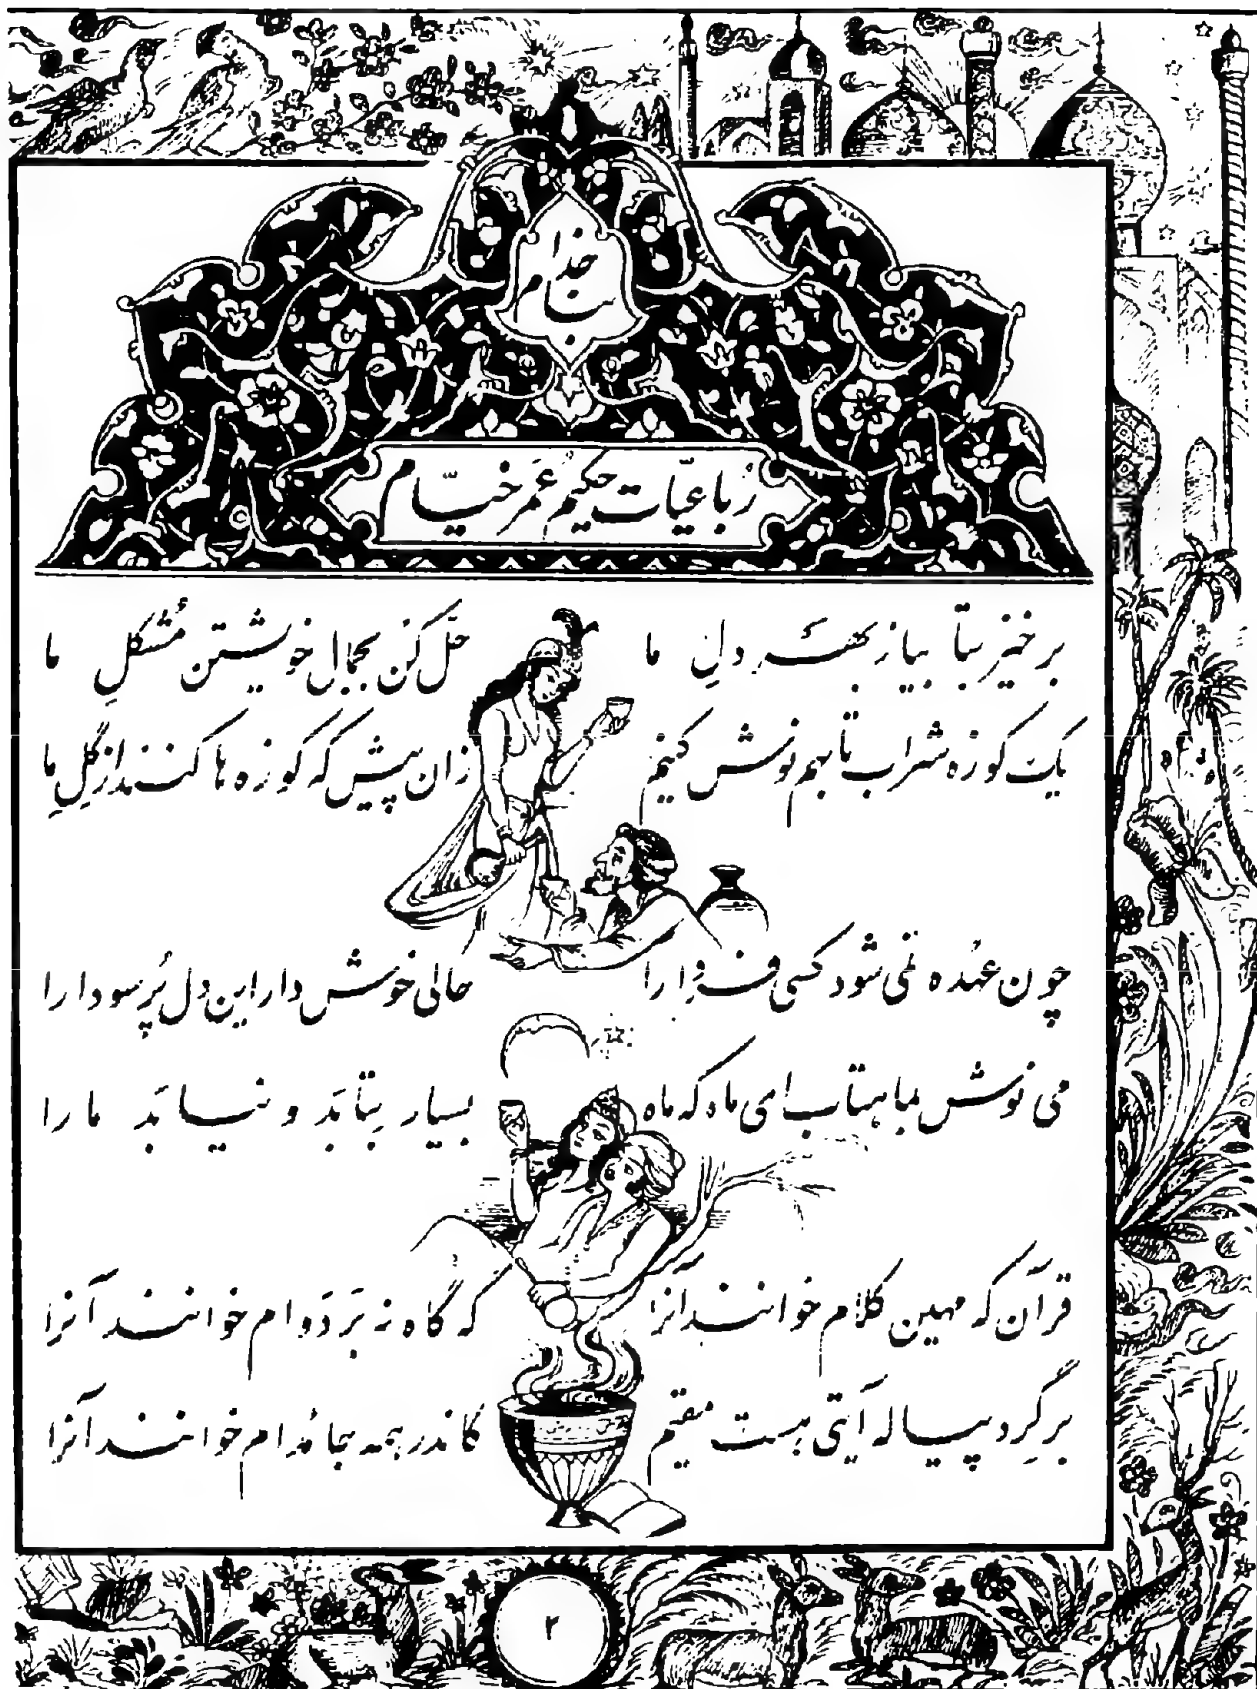 بنام خدا
رُباعیّات حکیم عُمَر خیّام
برخیز بتا بیا ز بهر دلِ ما
حلّ کن بجمال خویشتن مُشکلِ ما
یک کوزه شراب تا بهم نوش کنیم
زان پیش که کوزه‌ها کنند از گِلِ ما
چون عهُده نمی شود کسی فردا را
حالی خوش دار این دل پُر سودا را
می نوش بماهتاب ای ماه که ماه
بسیار بتابَد و نیابَد ما را
قرآن که مهین کلام خوانند آنرا
که گاه نه بَر دَوام خوانند آنرا
بر گِرد پیاله آیتی هست مقیم
کاندر همه جا مُدام خوانند آنرا
۲